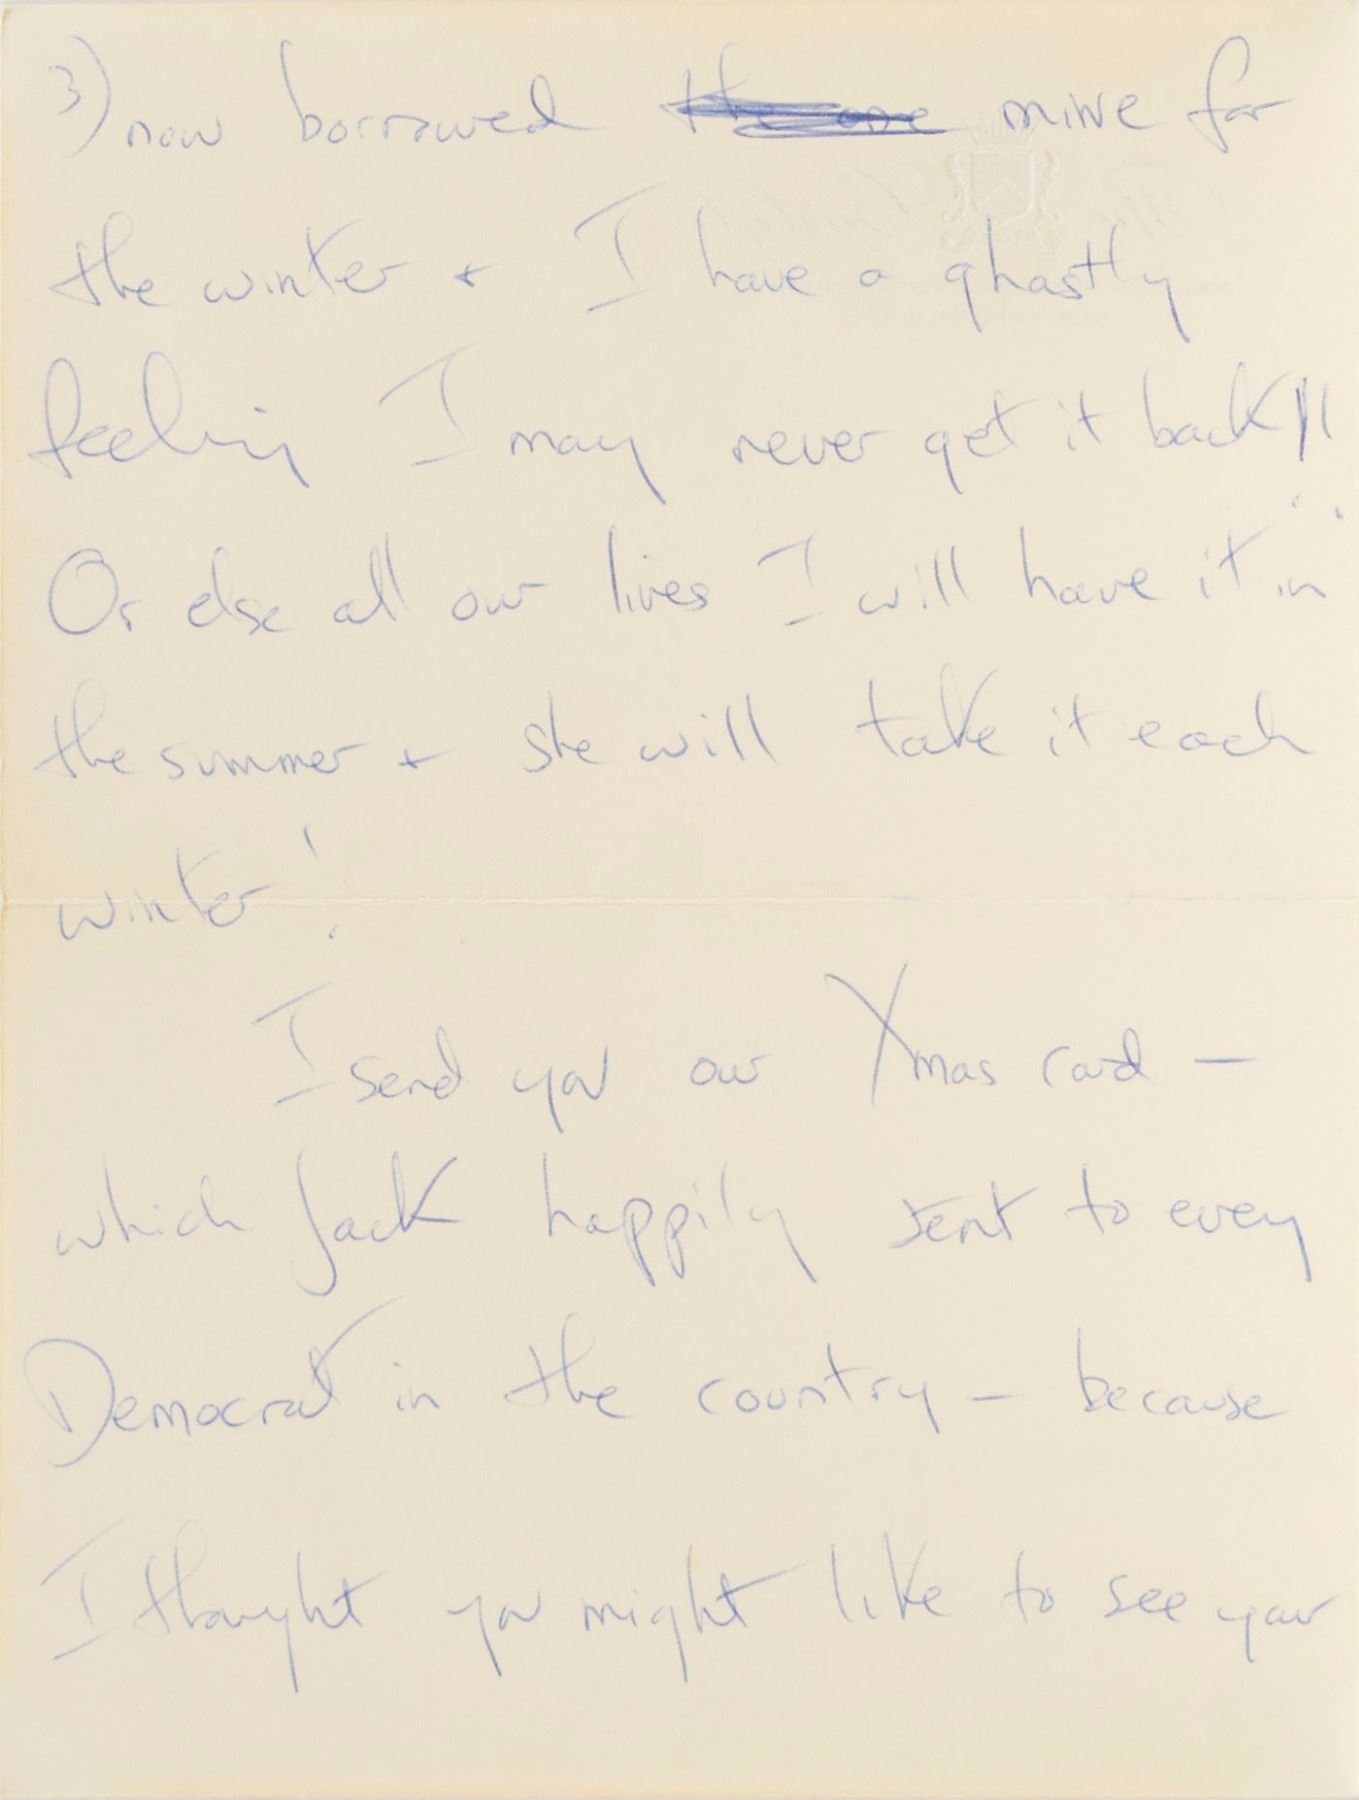 3) now borrowed the one mine for
the winter + I have a ghastly
feeling I may never get it back!!
Or else all our lives I will have it in
the summer + she will take it each
winter!
I send you our Xmas card —
which Jack happily sent to every
Democrat in the country — because
I thought you might like to see your